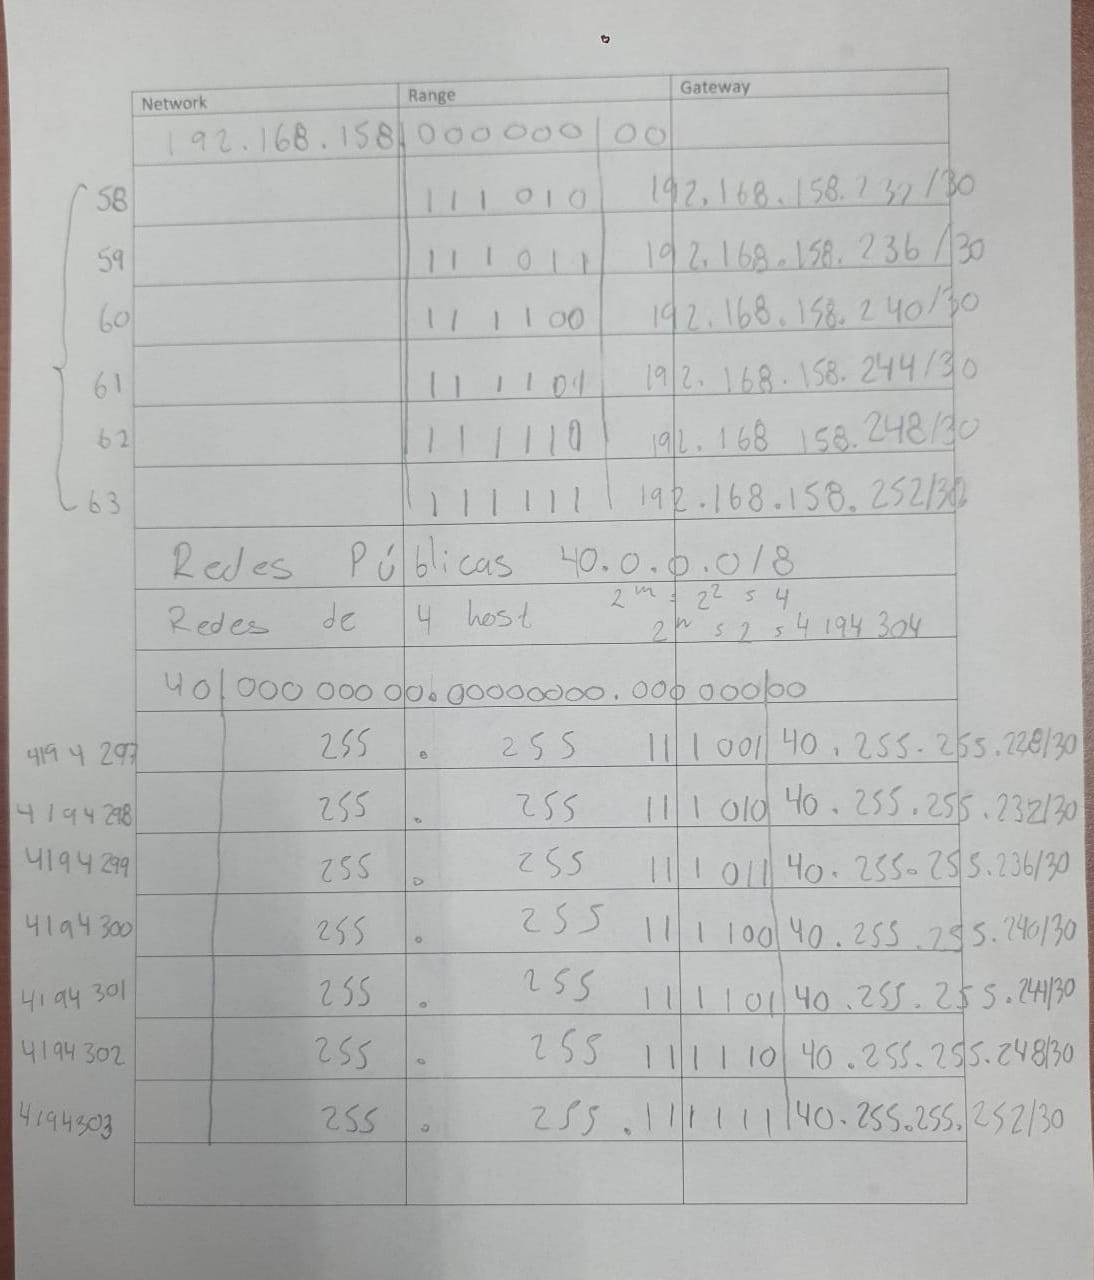 Network Range Gateway
192.168.158|000000|00
58 111010 192.168.158.232/30
59 111011 192.168.158.236/30
60 111100 192.168.158.240/30
61 111101 192.168.158.244/30
62 111110 192.168 158.248/30
63 111111 192.168.158.252/30
Redes Públicas 40.0.0.0/8
2^m = 2^2 = 4
Redes de 4 host 2^n = 2 = 4 194 304
40|000 000 00.00000000.000 000|00
4194 297 255 . 255 111001|40.255.255.228/30
4194298 255 . 255 111010|40.255.255.232/30
4194299 255 . 255 111011|40.255.255.236/30
4194300 255 . 255 111100|40.255.255.240/30
4194301 255 . 255 111101|40.255.255.244/30
4194302 255 . 255 111110|40.255.255.248/30
4194303 255 . 255.111111|40.255.255.252/30